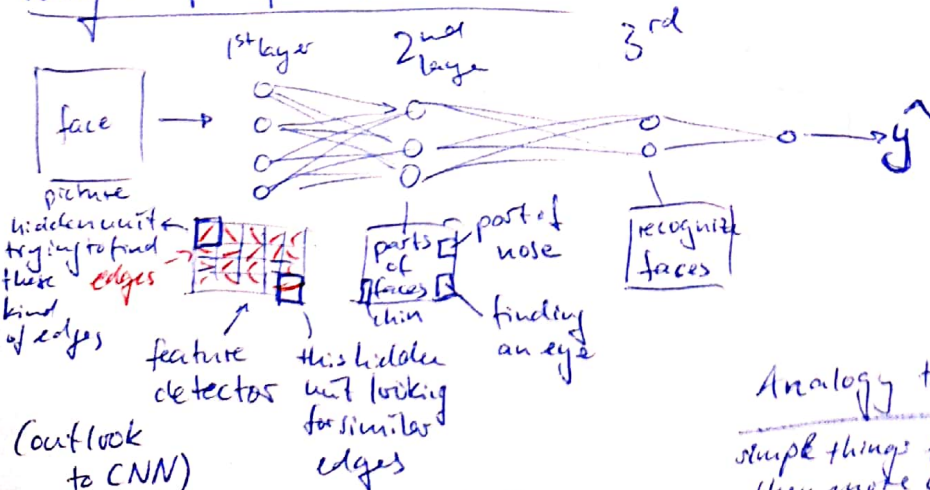 1st layer
2nd layer
3rd
face
ŷ
picture
hidden unit
trying to find
these
kind
of edges
edges
feature
detector
this hidden
unit looking
for similar
edges
parts
of
faces
chin
part of
nose
finding
an eye
recognize
faces
(outlook
to CNN)
Analogy
simple things
then more